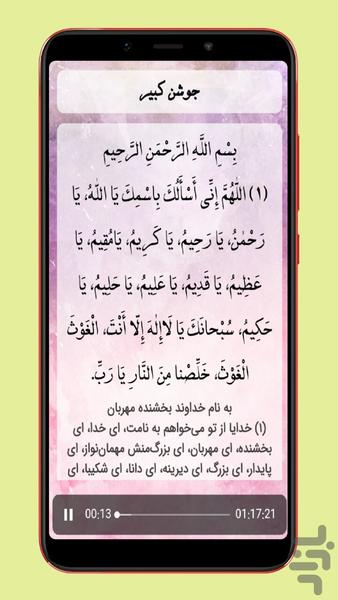 جوشن کبیر
بِسْمِ اللَّهِ الرَّحْمَنِ الرَّحِيمِ
(۱) اللَّهُمَّ إِنِّى أَسْأَلُكَ بِاسْمِكَ يَا اللّٰهُ، يَا
رَحْمٰنُ، يَا رَحِيمُ، يَا كَرِيمُ، يَامُقِيمُ، يَا
عَظِيمُ، يَا قَدِيمُ، يَا عَلِيمُ، يَا حَلِيمُ، يَا
حَكِيمُ، سُبْحَانَكَ يَا لَاإِلٰهَ إِلّا أَنْتَ، الْغَوْثَ
الْغَوْثَ، خَلِّصْنا مِنَ النَّارِ يَا رَبِّ.
به نام خداوند بخشنده مهربان
(۱) خدایا از تو می‌خواهم به نامت، ای خدا، ای
بخشنده، ای مهربان، ای بزرگ‌منش مهمان‌نواز، ای
پایدار، ای بزرگ، ای دیرینه، ای دانا، ای شکیبا، ای
00:13 01:17:21
بازار